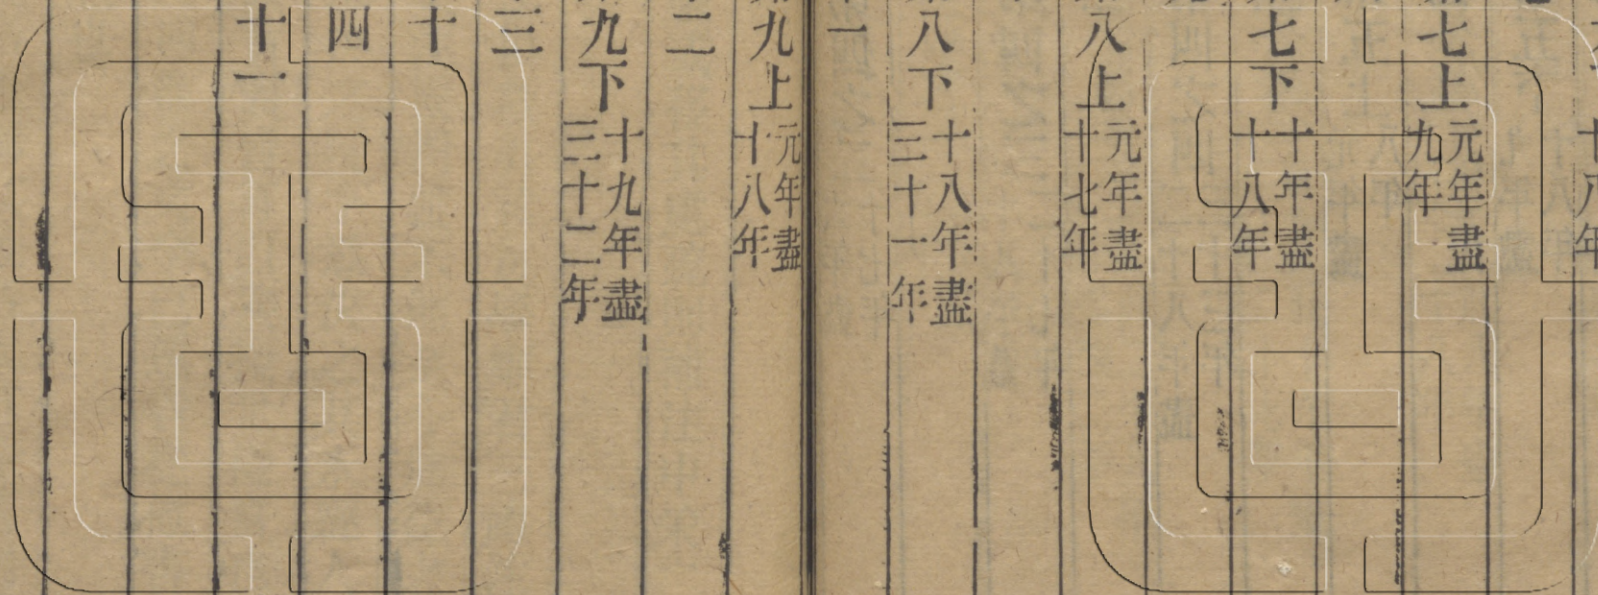 八年
七上 元年盡九年
七下 十年盡十八年
八上 元年盡十七年
八下 十八年盡三十一年
一
九上 元年盡十八年
二
九下 十九年盡三十二年
三
十
四
十一